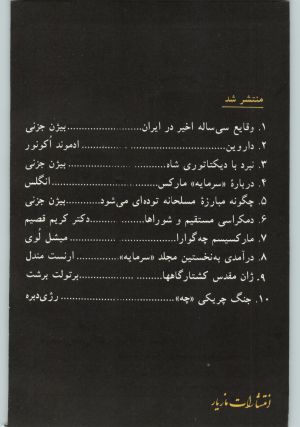 منتشر شد
۱. وقایع سی‌ساله اخیر در ایران..................بیژن جزنی
۲. داروین..................ادموند اُکونور
۳. نبرد با دیکتاتوری شاه..................بیژن جزنی
۴. دربارهٔ «سرمایه» مارکس..................انگلس
۵. چگونه مبارزهٔ مسلحانه توده‌ای می‌شود..................بیژن جزنی
۶. دمکراسی مستقیم و شوراها..................دکتر کریم قصیم
۷. مارکسیسم چه‌گوارا..................میشل لُوی
۸. درآمدی به‌نخستین مجلد «سرمایه»..................ارنست مندل
۹. ژان مقدس کشتارگاهها..................برتولت برشت
۱۰. جنگ چریکی «چه»..................رژی‌دبره
انتشارات مازیار